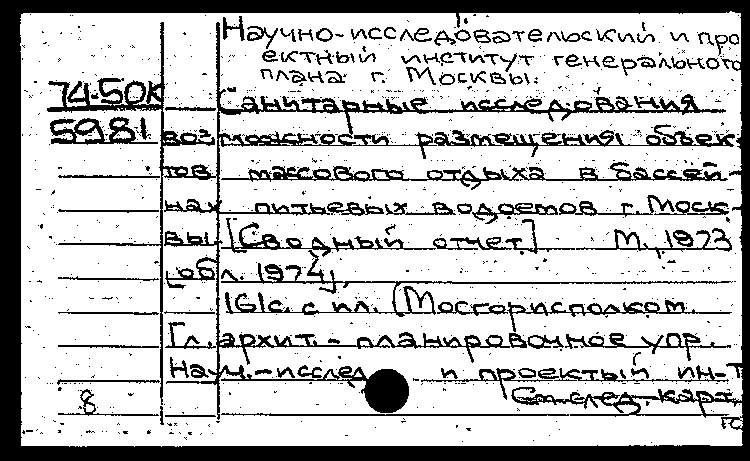 Научно-исследовательский и про
ектный институт генерального
плана г. Москвы.
74-50К
5981
Санитарные исследования
возможности размещения объек-
тов массового отдыха в бассей-
нах питьевых водоемов г. Моск-
вы. [Сводный отчет]. М., 1973
[обл. 1974],
161с. с ил. (Мосгорисполком.
Гл. архит.-планировочное упр.
Науч.-исслед. и проектый ин-т
См. след. карт.
8